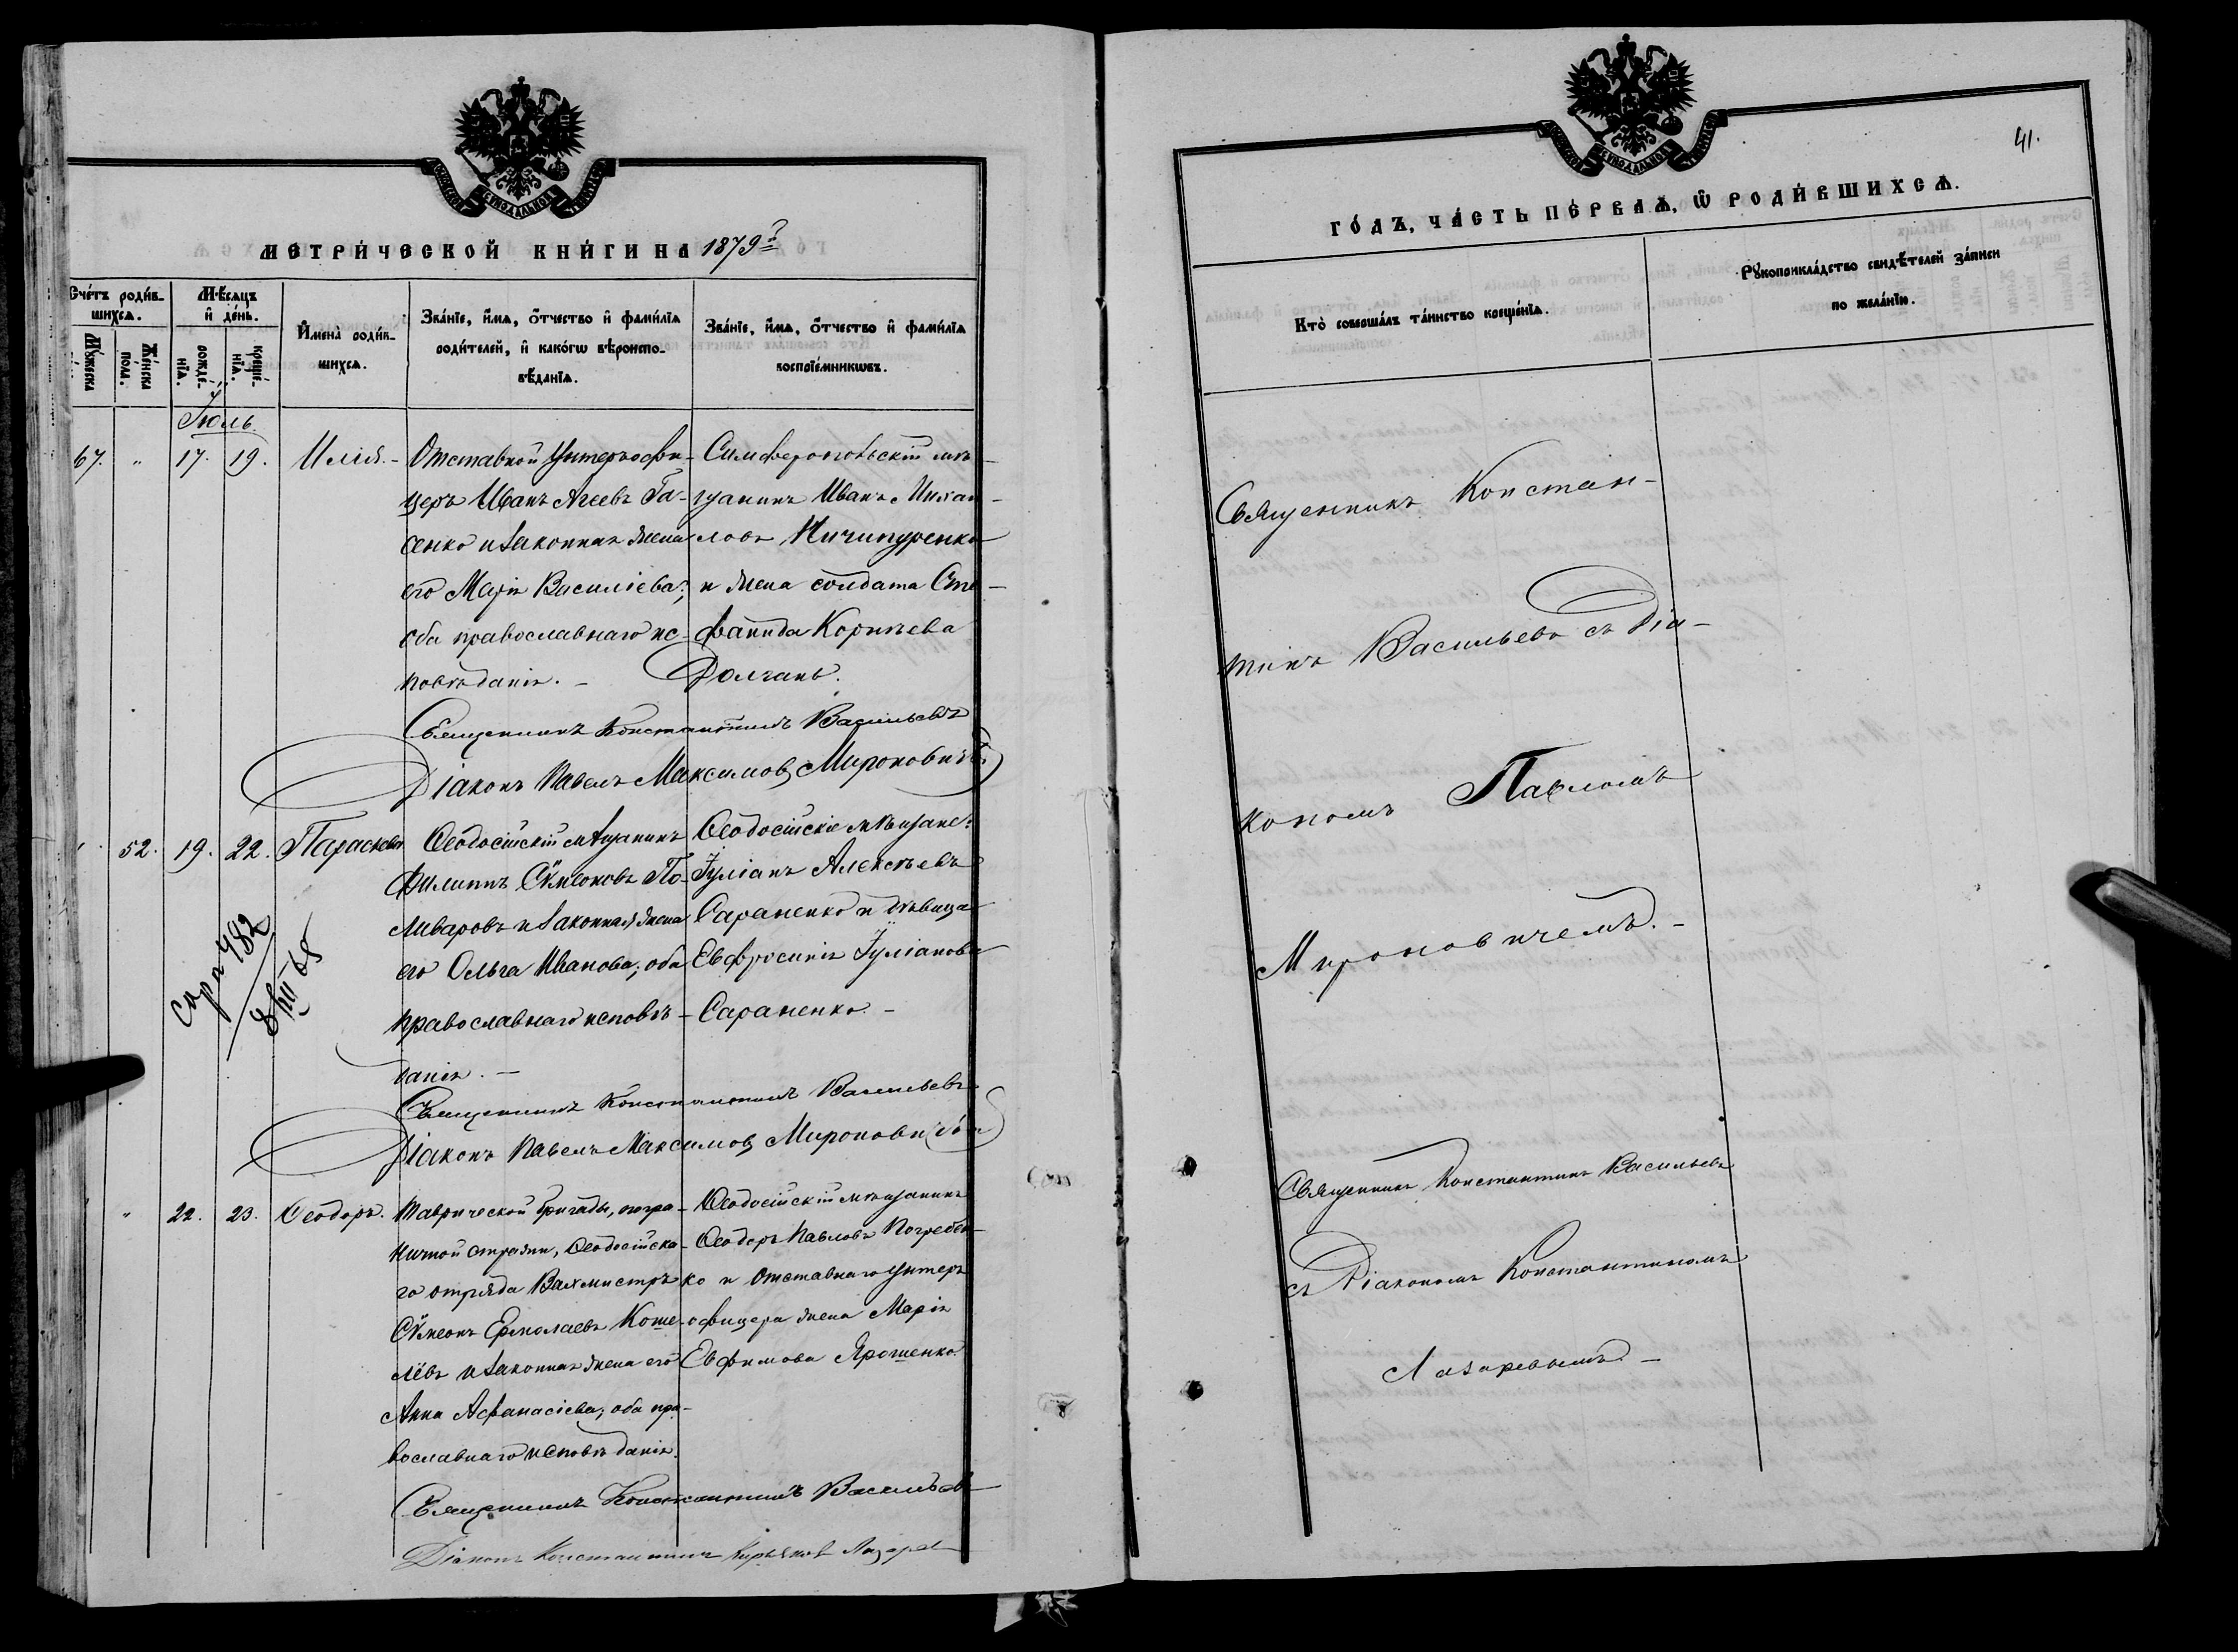 МЕТРИ́ЧЕСКОЙ КНИ́ГИ НА 1879й
Сче́тъ роди́в-
шихся.
Мѣ́сяцъ
и҆ де́нь.
Му́жеска
Же́нска
по́ла.
рожде́-
нїѧ.
креще́-
нїѧ.
И҆мена̀ роди́в-
шихсѧ.
Зва́нїе, и҆́мѧ, ѻ҆́тчество и҆ фами́лїѧ
роди́телей, и҆ како́гѡ вѣроиспо-
вѣ́данїѧ.
Зва́нїе, и҆́мѧ, ѻ҆́тчество и҆ фами́лїѧ
воспрїе́мникѡвъ.
Іюль.
67. " 17. 19. Илія. -
Отставной Унтеръ офи-
церъ Иванъ Агеевъ Га-
сенко и законная жена
его Марія Василіева;
оба православнаго ис-
повѣданія. -
Симферопольскій мѣ-
щанинъ Иванъ Михаи-
ловъ Ничипуренко
и жена солдата Сте-
фанида Корнѣева
Долганъ.
Священникъ Константинъ Васильевъ
Діаконъ Павелъ Максимовъ Мироновичъ
52. 19. 22. Параскева
Ѳеодосійскій мѣщанинъ
Филиппъ Сѵмеоновъ По-
ливаровъ и законная жена
его Ольга Иванова; оба
православнаго исповѣ-
данія. -
Ѳеодосійскіе мѣщане:
Іуліанъ Алексѣевъ
Сараненко и дѣвица
Евфросинія Іуліанова
Сараненко. -
Спр 482
8/III 68
Священникъ Константинъ Васильевъ
Діаконъ Павелъ Максимовъ Мироновичъ
" 22. 23. Ѳеодоръ.
Таврической бригады, погра-
ничной стражи, Ѳеодосійска-
го отряда Вахмистръ
Сѵмеонъ Ермолаевъ Коше-
лёвъ и законная жена его
Анна Афанасіева; оба пра-
вославнаго исповѣданія.
Ѳеодосійскій мѣщанинъ
Ѳеодоръ Павловъ Погребен-
ко и Отставнаго Унтеръ
офицера жена Марія
Евфимова Ярошенко.
Священникъ Константинъ Васильевъ
Діаконъ Константинъ Лазаревъ
41.
ГО́ДЪ, ЧА́СТЬ ПЕ́РВАѦ, Ѡ҆ РОДИ́ВШИХСѦ.
Кто̀ соверша́лъ та́инство креще́нїѧ.
Рꙋкоприкла́дство свидѣ́телей за́писи
по жела́нїю.
Священникъ Констан-
тинъ Васильевъ съ Діа-
кономъ Павломъ
Мироновичемъ. -
Священникъ Константинъ Васильевъ
съ Діакономъ Константиномъ
Лазаревымъ. -